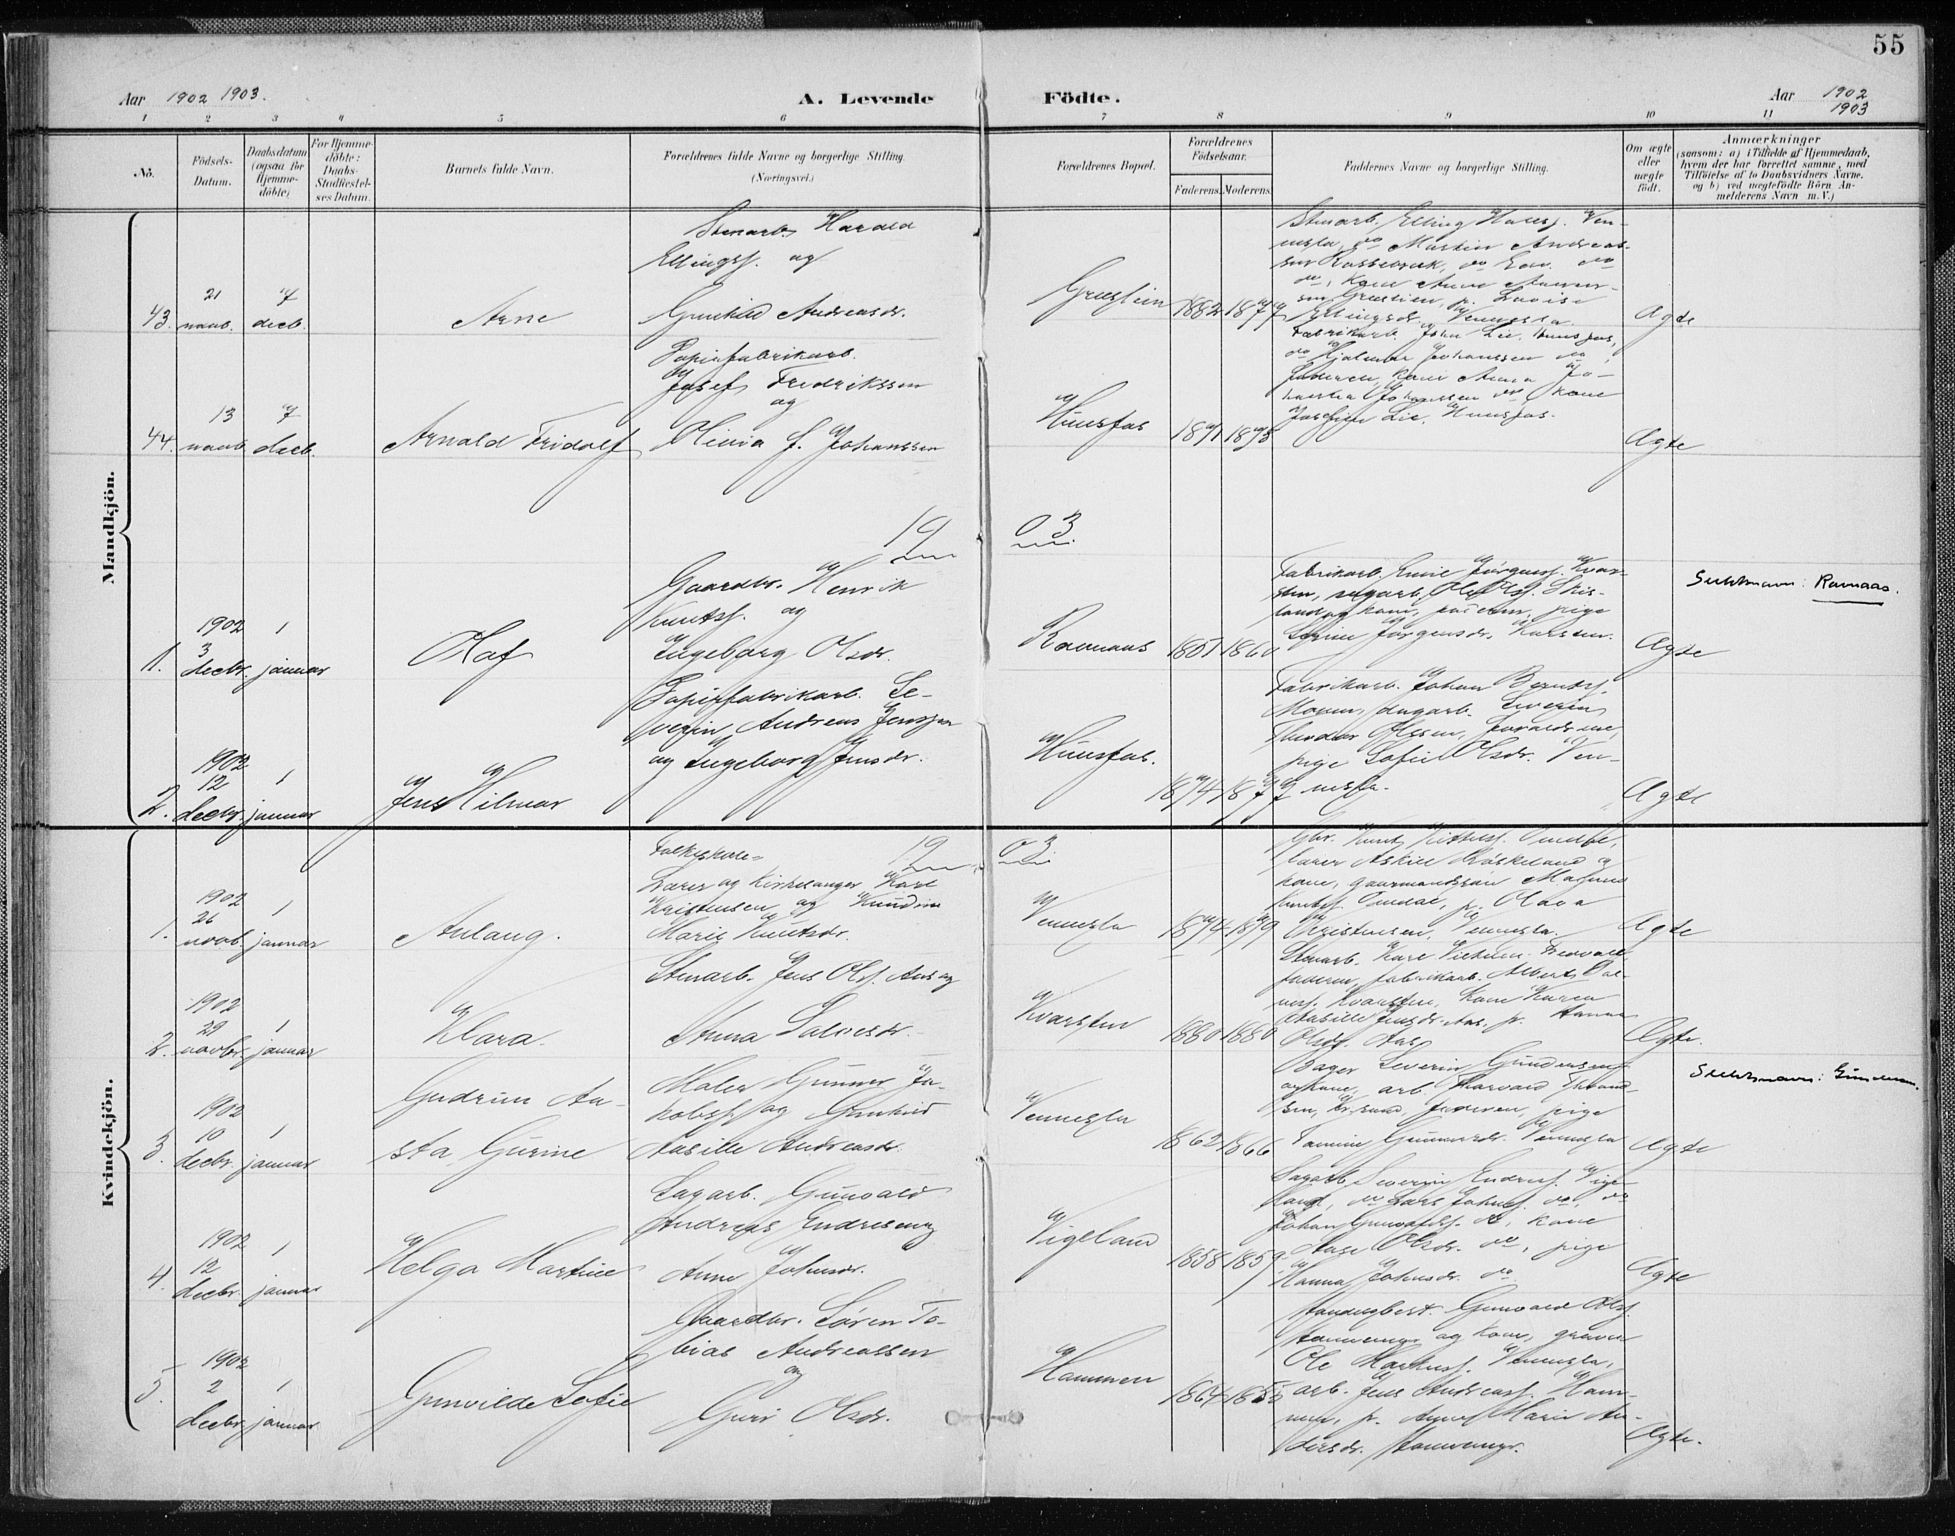 55
Aar 1902 1903.
A. Levende Födte.
Aar 1902
1903
1 2 3 4 5 6 7 8 9 10 11
No.
Födsels-
Datum.
Daabsdatum
(ogsaa for
Hjemme-
döbte)
For Hjemme-
döbte:
Daabs-
Stadfæstel-
ses Datum.
Barnets fulde Navn.
Forældrenes fulde Navne og borgerlige Stilling.
(Næringsvei.)
Forældrenes Bopæl.
Forældrenes
Födselsaar.
Faderens. Moderens.
Faddernes Navne og borgerlige Stilling.
Om ægte
eller
uægte
födt.
Anmærkninger
(saasom: a) i Tilfælde af Hjemmedaab,
hvem der har forrettet samme, med
Tilföielse af to Daabsvidners Navne.
og b) ved uægtefödte Börn An-
melderens Navn m. V.)
Mandkjön.
43.
21
novb.
7
decb.
Arne
Stenarb. Harald
Ellingsf. og
Gunhild Andreasdr.
Grustien
1882 1877
Stenarb. Elling Ven-
nesla, do Martin Andreas-
do
do, kone Anne
Grustien, p. Lovise
Ellingsdr. Vennesla.
Ægte
44.
13
novb.
7
decb.
Arnold Fridolf
Papirfabrikarb.
Josef Fredrikssen
og
Olivia J. Johanssen
Hunsfos
1871 1875
Fabrikarb. John Lie, Hunsfos,
do Hjalmar Johanssen do,
Faderen, kone Anna Jo-
Johanssen do, kone
Josefine Lie, Hunsfos.
Ægte
19 03
1.
1902
3
decbr.
1
januar
Olaf
Gaardbr. Henrik
Knutsf. og
Ingeborg Olsdr.
Ramaas
1851 1860
Fabrikarb. Emil Jørgensf. Kvar-
sten, sagarb. Ole Olsf.
land og kone, pige
Jørgensdr. Kvarsten.
Ægte
Slektsnavn: Ramaas.
2.
1902
12
decbr.
1
januar
Jens Hilmar
Papirfabrikarb. Se-
verin Andreas Jenssen
og Ingeborg Jensdr.
Hunsfos.
1874 1877
Fabrikarb. Johan Berntsf.
Moen, sagarb. Severin
Theodor Olssen, forældrene,
pige Sofie Olsdr. Ven-
nesla.
Ægte
Kvindekjön.
19 03
1.
1902
26
novb.
1
januar
Aslaug.
Folkeskole-
Lærer og kirkesanger Kare
Kristensen og Kundine
Marie Knutsdr.
Vennesla
1874 1879
Gbr. Knut Kittelsf. Omdal,
lærer Askild Røskeland og
kone, gaarmandssøn Magnus
Knutsf. Omdal, p. Olava
Kristensen, Vennesla.
Ægte
2.
1902
29
novbr.
1
januar
Klara.
Stenarb. Jens Olsf. Aas og
Anna Salvesdr.
Kvarsten
1880 1880
Stenarb. Kare
faderen, fabrikarb. Albert Sal-
vesf. Kvarsten, kone Karen
Aasille Jensdr. Aas, p. Hanna
Olsdr. Aas
Ægte.
3.
1902
10
decbr.
1
januar
Gudrun Au-
sta Gurine
Maler Gunner Ja-
kobsf. og Gunhild
Aasille Andreasdr.
Vennesla
1862 1866
Bager Severin Gundersen
og kone, arb. Harvald
sen, Kr.sand, faderen, pige
Tomine Gunnersdr. Vennesla
Ægte
Slektsnavn: Gundersen.
4.
1902
12
decbr.
1
januar
Helga Martine
Sagarb. Gunvald
Andreas Endresen og
Anne Johnsdr.
Vigeland
1858 1859
Sagarb. Severin Endresf. Vige-
land, do Lars Johnsf. do, do
Johan Gunvaldsf. do, kone
Aase Olsdr. do, pige
Hanna Johnsdr. do
Ægte
5.
1902
2
decbr.
1
januar
Gunvilde Sofie
Gaardbr. Søren To-
bias Andreassen
og
Guri Olsdr.
Hammen
1864 1855
Gunvald Olsf.
og kone, graver
Ole Markusf. Vennesla,
arb. Jens Andreasf. Ham-
men, p. Anne Marie An-
dersdr.
Ægte.